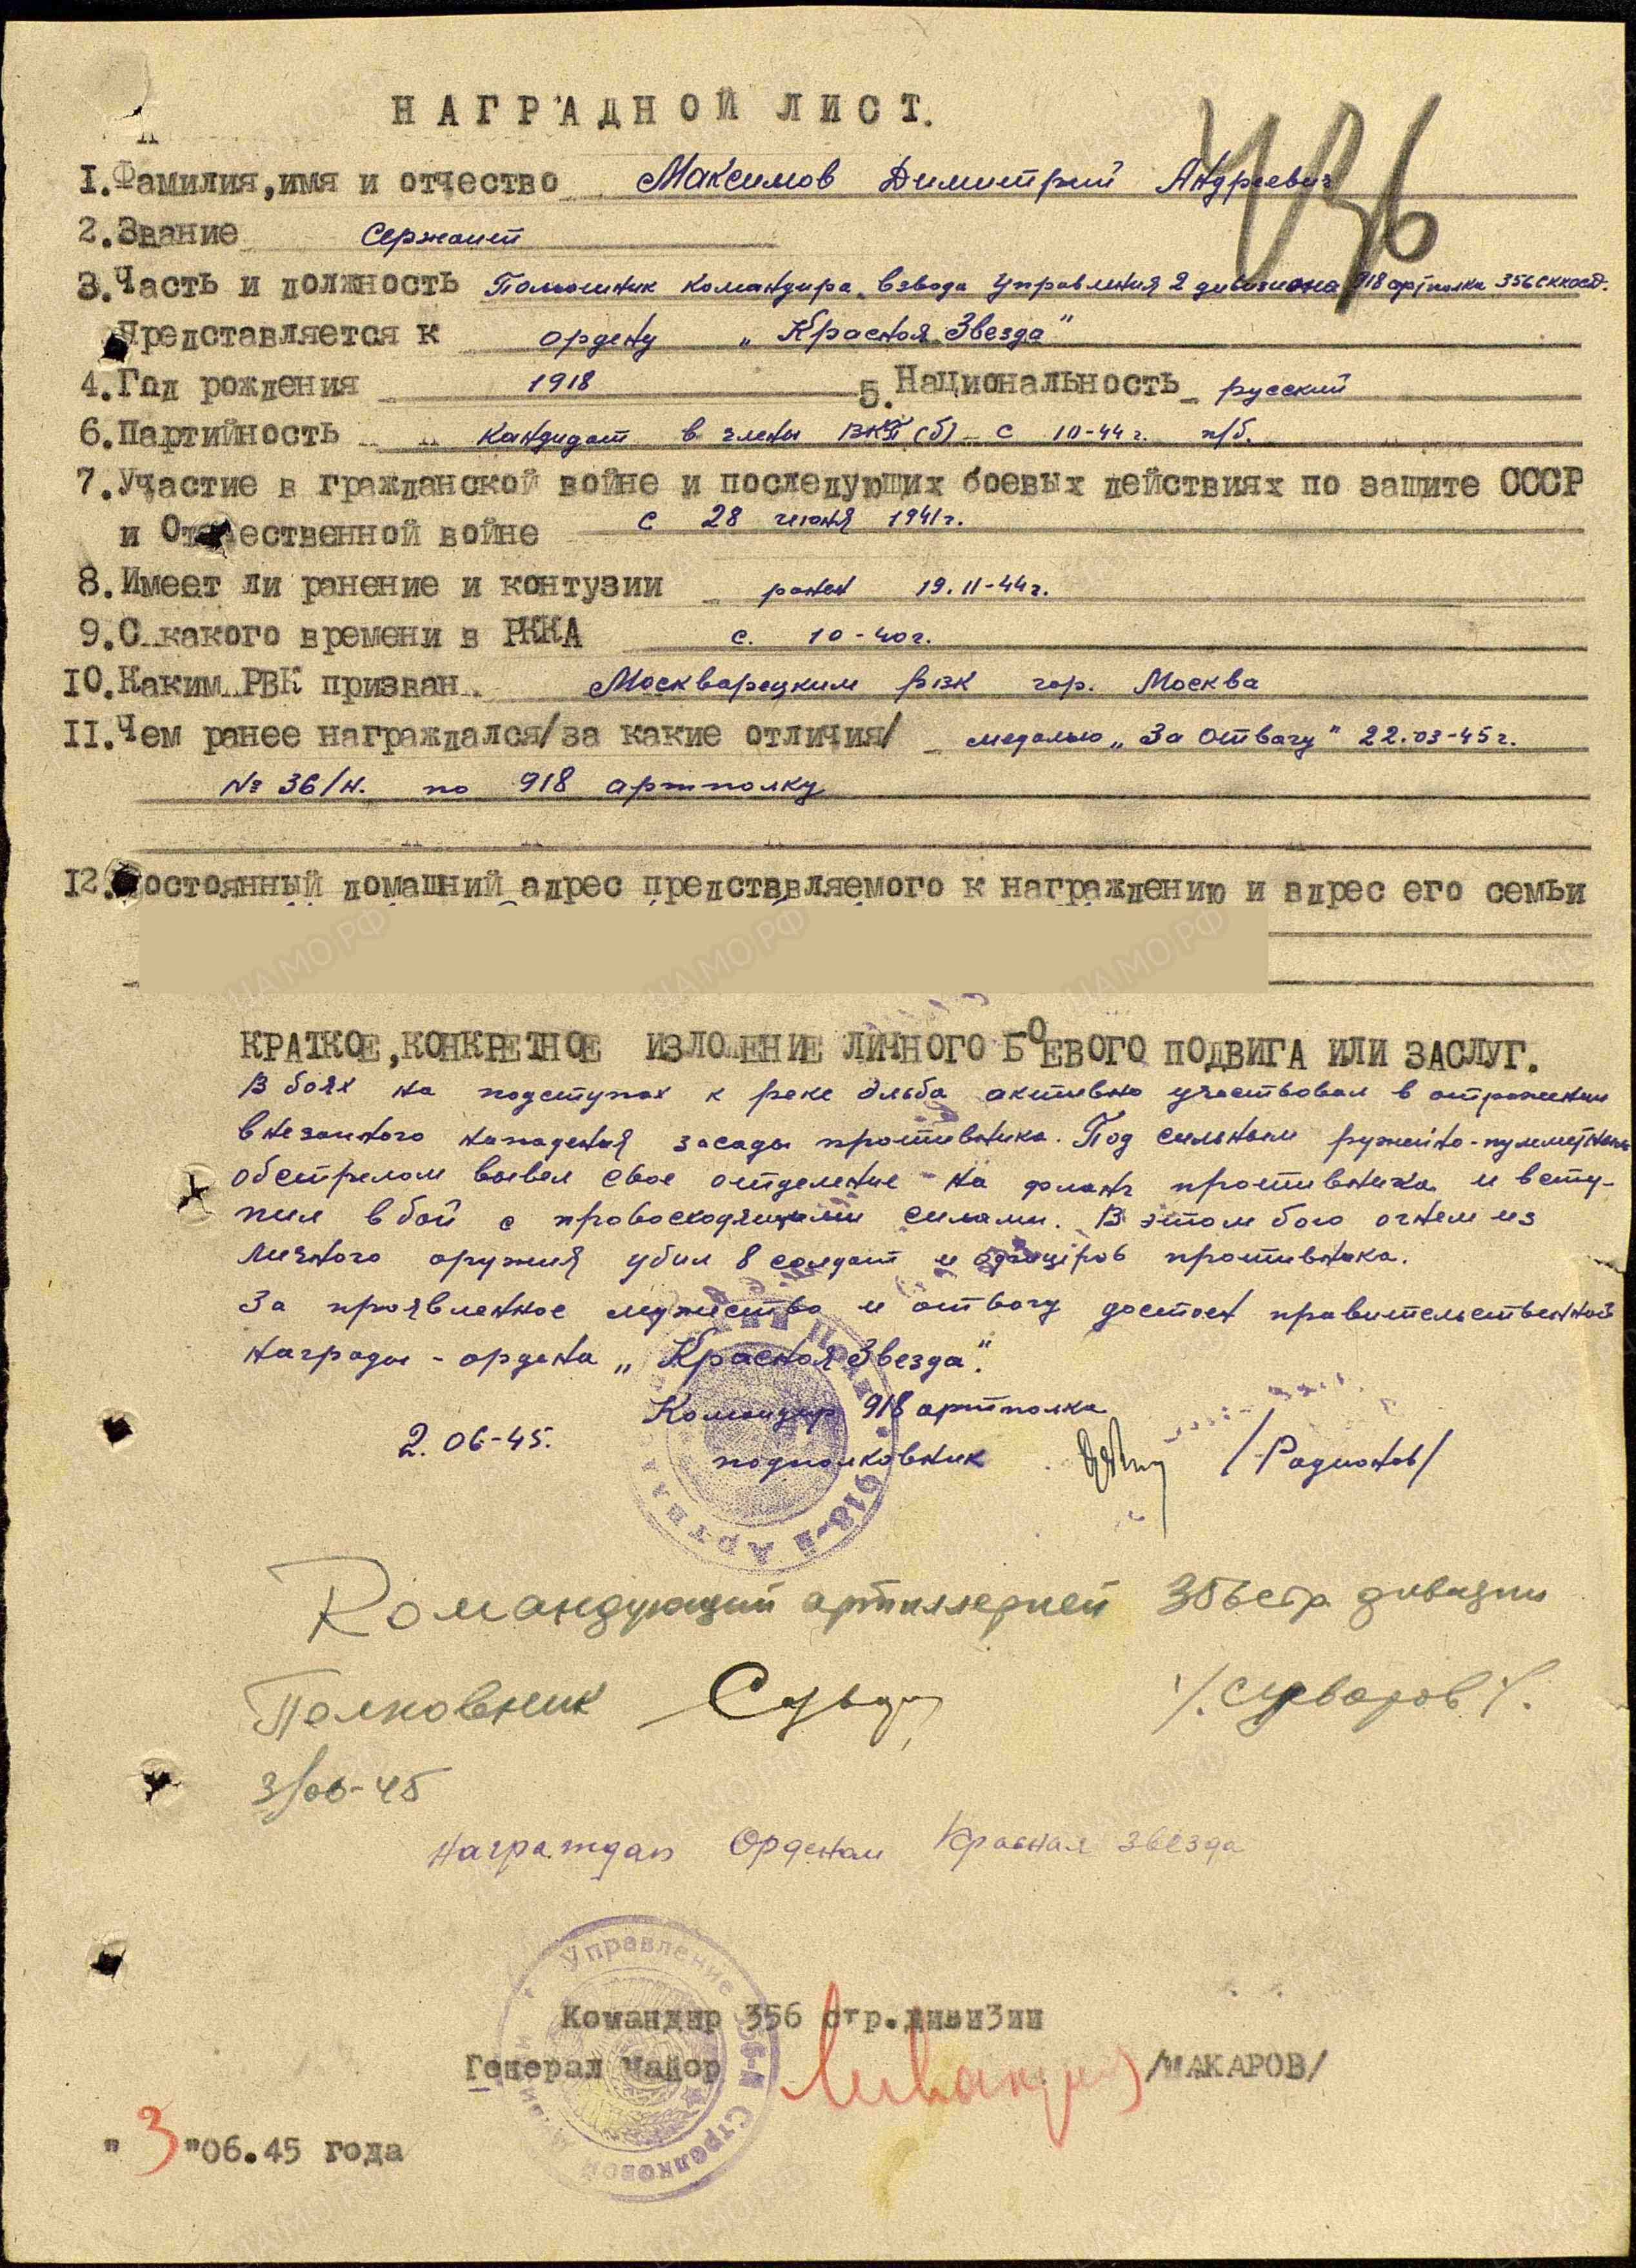 НАГРАДНОЙ ЛИСТ.
436
1.Фамилия,имя и отчество Максимов Димитрий Андреевич
2.Звание Сержант
3.Часть и должность Помошник командира взвода управления 2 дивизиона 918 артполка 356 с ккосд.
Представляется к ордену "Красная Звезда"
4.Год рождения 1918 5.Национальность русский
6.Партийность кандидат в члены ВКП(б) с 10-44 г. п/б.
7.Участие в гражданской войне и последующих боевых действиях по защите СССР
и Отечественной войне с 28 июня 1941г.
8.Имеет ли ранение и контузии ранен 19.11-44г.
9.С какого времени в РККА с. 10-40г.
10.Каким РВК призван Москворецким РВК гор. Москва
11.Чем ранее награждался/за какие отличия/ медалью "За Отвагу" 22.03-45г.
№ 36/н. по 918 артполку
12.Постоянный домашний адрес представляемого к награждению и адрес его семьи
КРАТКОЕ,КОНКРЕТНОЕ ИЗЛОЖЕНИЕ ЛИЧНОГО БОЕВОГО ПОДВИГА ИЛИ ЗАСЛУГ.
В боях на подступах к реке Эльба активно участвовал в отражении
внезапного нападения засады противника. Под сильным ружейно-пулеметным
обстрелом вывел свое отделение на фланг противника и всту-
пил в бой с провосходящими силами. В этом бою огнем из
личного оружия убил 8 солдат и офицеров противника.
За проявленное мужество и отвагу достоен правительственной
награды - ордена "Красная Звезда".
Командир 918 артполка
2.06-45. подполковник /Родионов/
918-й Арт
Командующий артиллерией 356 стр дивизии
Полковник /.Суворов/.
3/06-45
Награжден Орденом Красная звезда
Управление 356-й Стрелковой
Командир 356 стр.дивиЗии
Генерал майор /МАКАРОВ/
"3"06.45 года
ЦАМО РФ